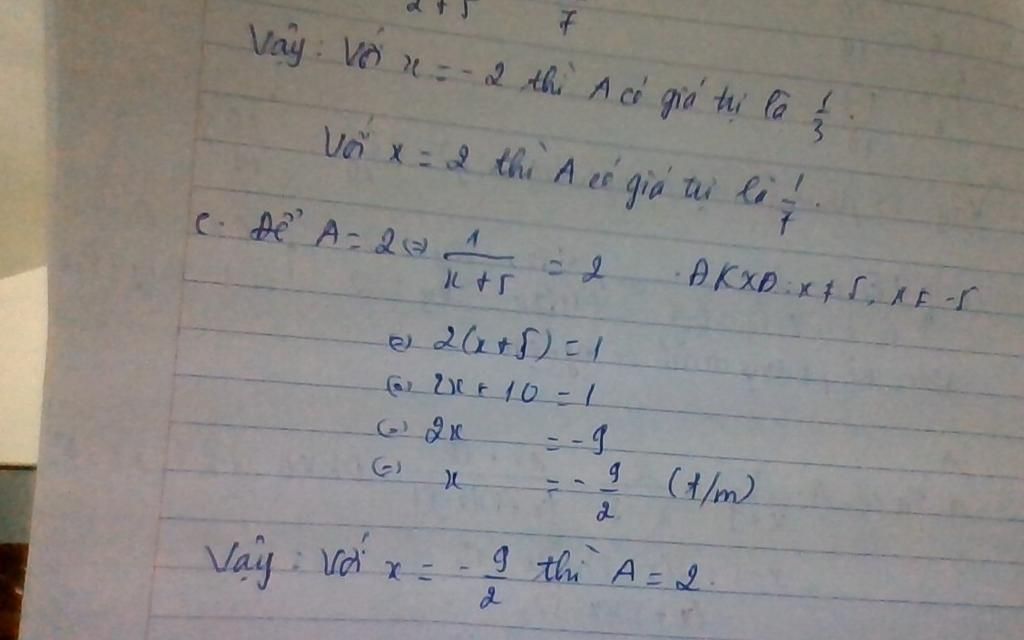 2+5 7
Vậy : Với x = - 2 thì A có giá trị là 1/3.
Với x = 2 thì A có giá trị là 1/7.
c. Để A = 2 (=) 1/(x+5) = 2 ĐKXĐ: x ≠ 5, x ≠ -5
(=) 2(x+5) = 1
(=) 2x + 10 = 1
(=) 2x = -9
(=) x = - 9/2 (t/m)
Vậy : Với x = - 9/2 thì A = 2.